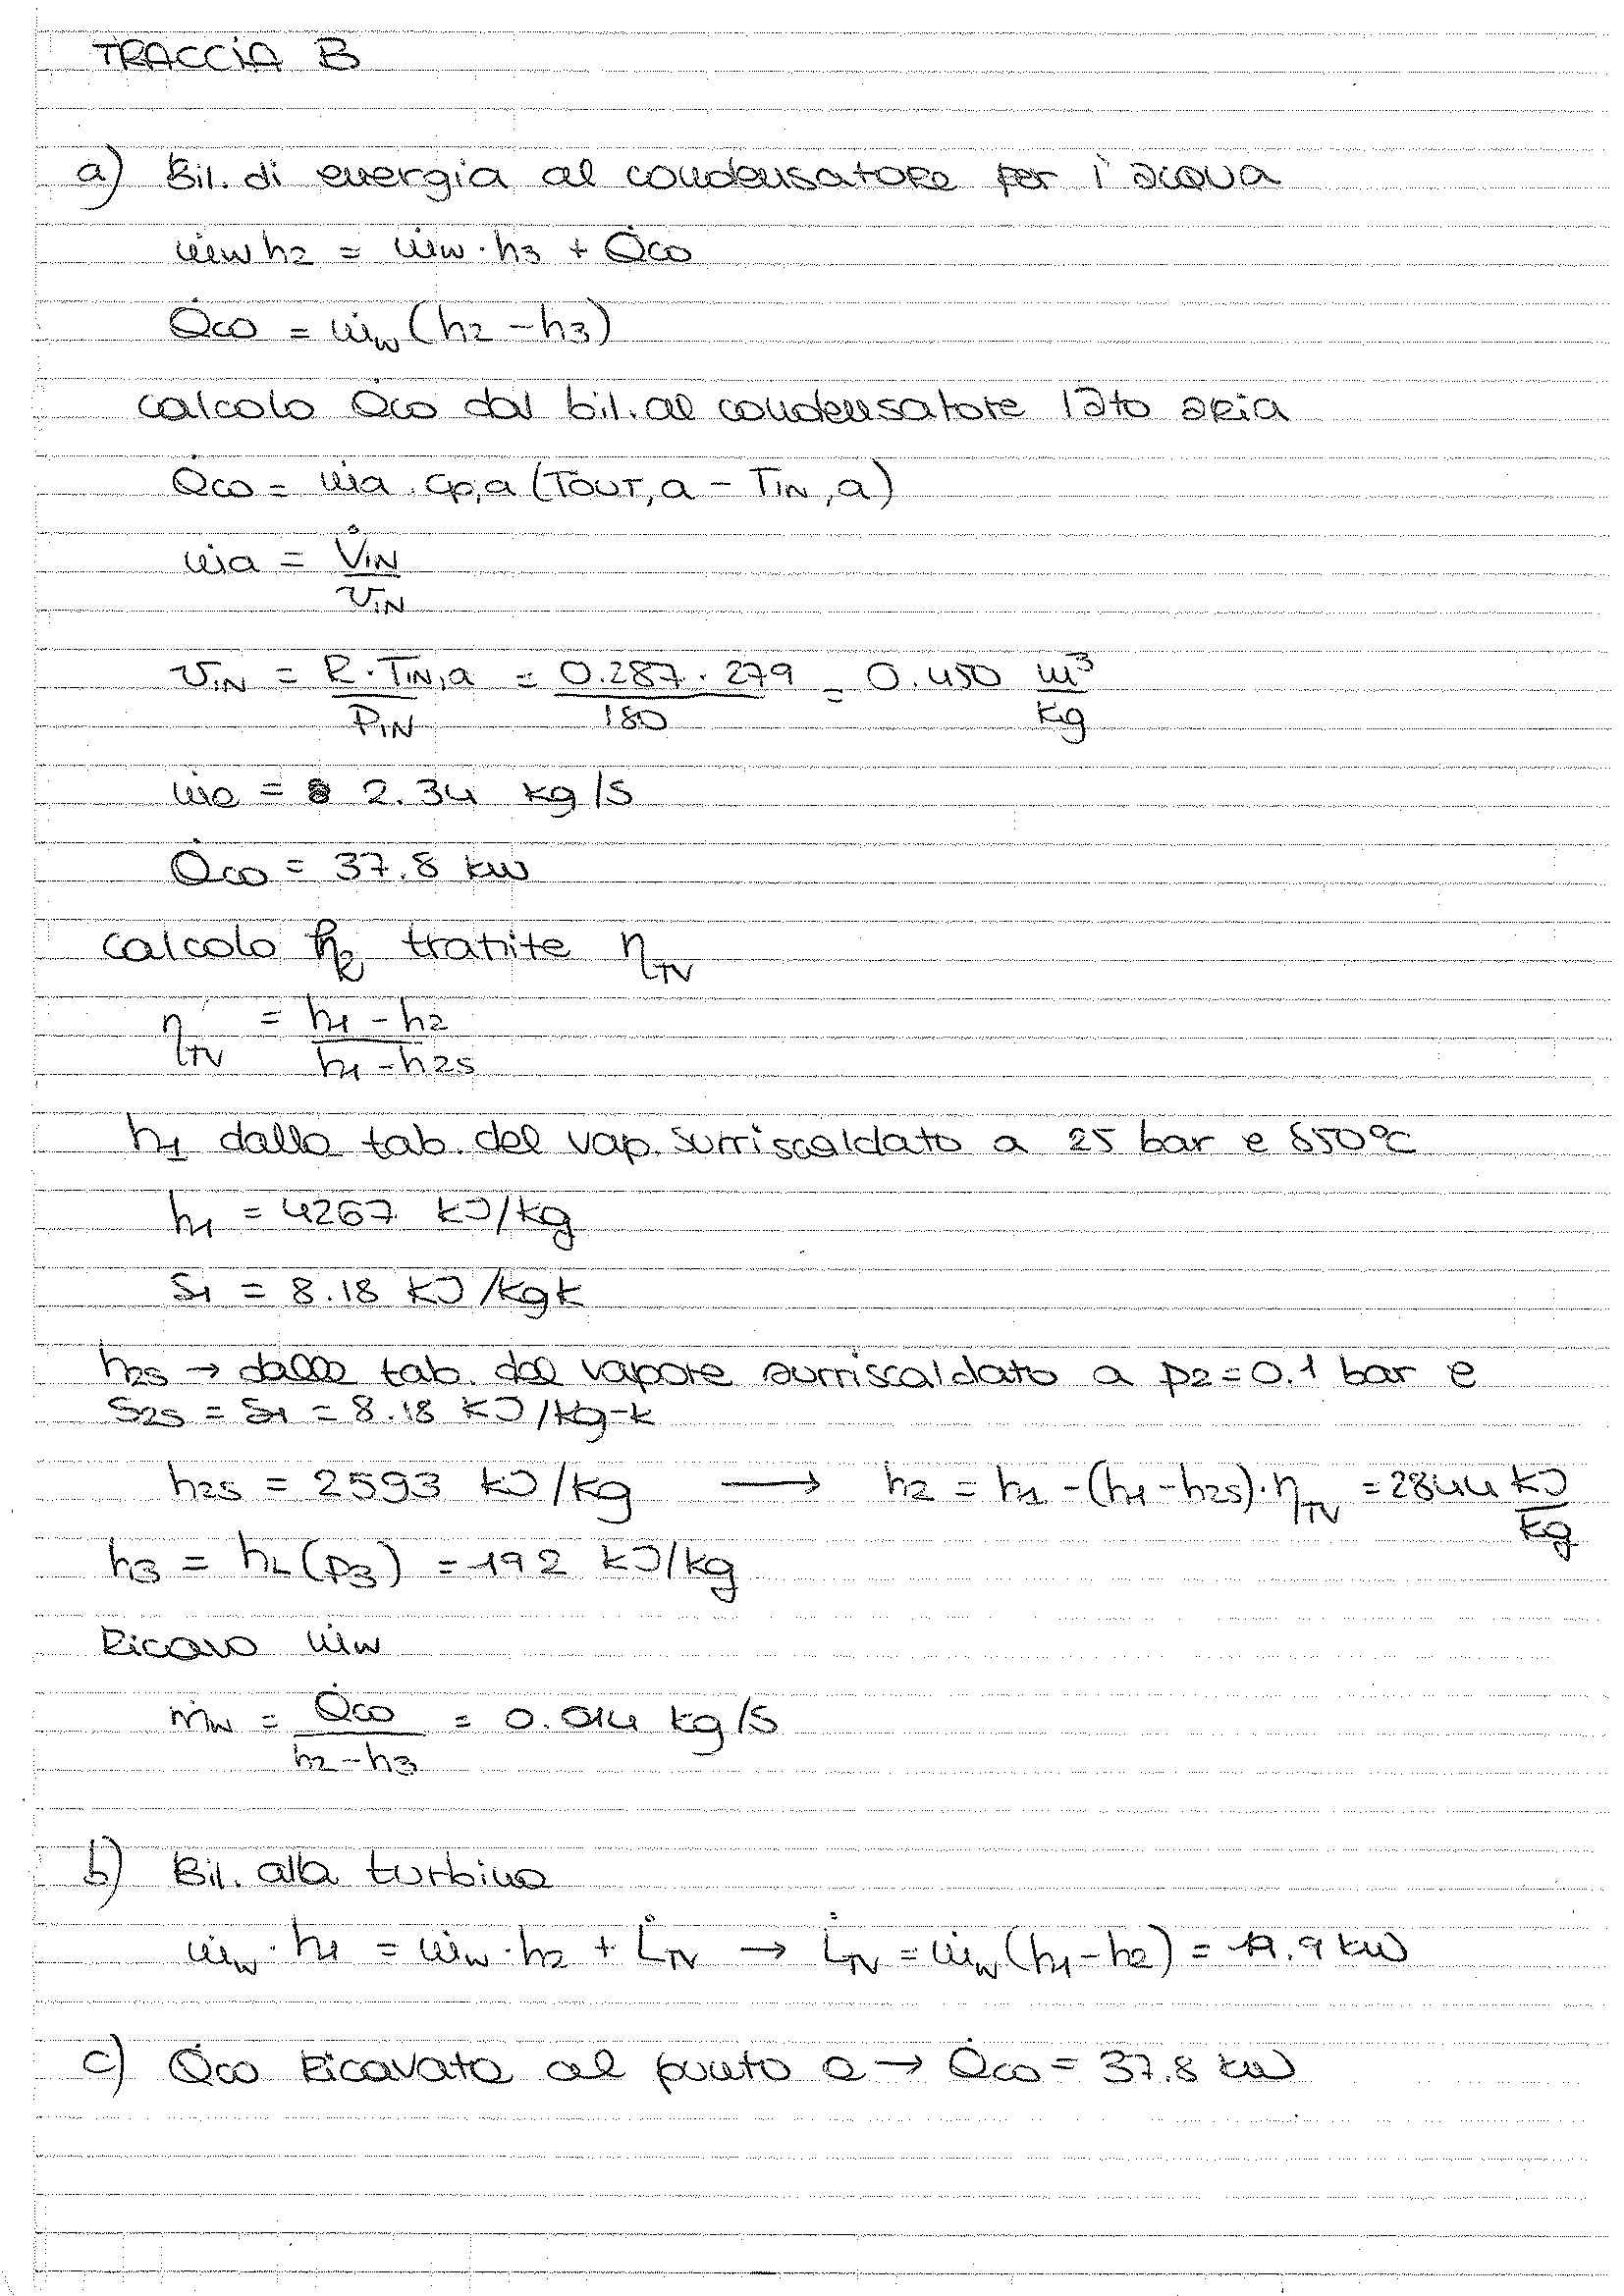 TRACCIA B
a) Bil. di energia al condensatore per l'acqua
ṁw h2 = ṁw · h3 + Q̇co
Q̇co = ṁw (h2 - h3)
calcolo Q̇co dal bil. al condensatore lato aria
Q̇co = ṁa · cp,a (TOUT,a - TIN,a)
ṁa = V̇IN / vIN
vIN = R · TIN,a / PIN = 0.287 · 279 / 180 = 0.450 m³/kg
ṁa = 2.34 kg/s
Q̇co = 37.8 kW
calcolo h2 tramite ηTV
ηTV = h1 - h2 / h1 - h2s
h1 dalla tab. del vap. surriscaldato a 25 bar e 850°C
h1 = 4267 kJ/kg
s1 = 8.18 kJ/kgK
h2s → dalla tab. del vapore surriscaldato a p2 = 0.1 bar e
s2s = s1 = 8.18 kJ/kg-K
h2s = 2593 kJ/kg → h2 = h1 - (h1 - h2s) · ηTV = 2844 kJ/kg
h3 = hL (p3) = 192 kJ/kg
Ricavo ṁw
ṁw = Q̇co / h2 - h3 = 0.014 kg/s
b) Bil. alla turbina
ṁw · h1 = ṁw · h2 + L̇TV → L̇TV = ṁw (h1 - h2) = 19.9 kW
c) Q̇co Ricavata al punto a → Q̇co = 37.8 kW